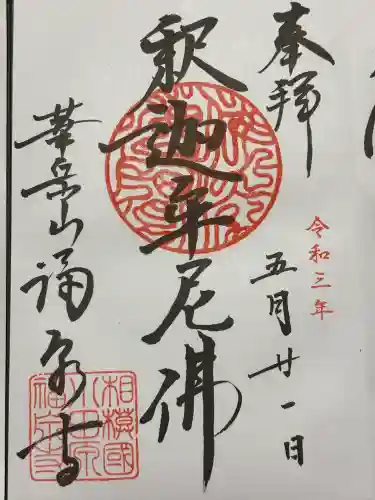 奉拝
令和三年
五月廿一日
釈迦牟尼佛
華岳山 福泉寺
相模國
小田原
福泉寺